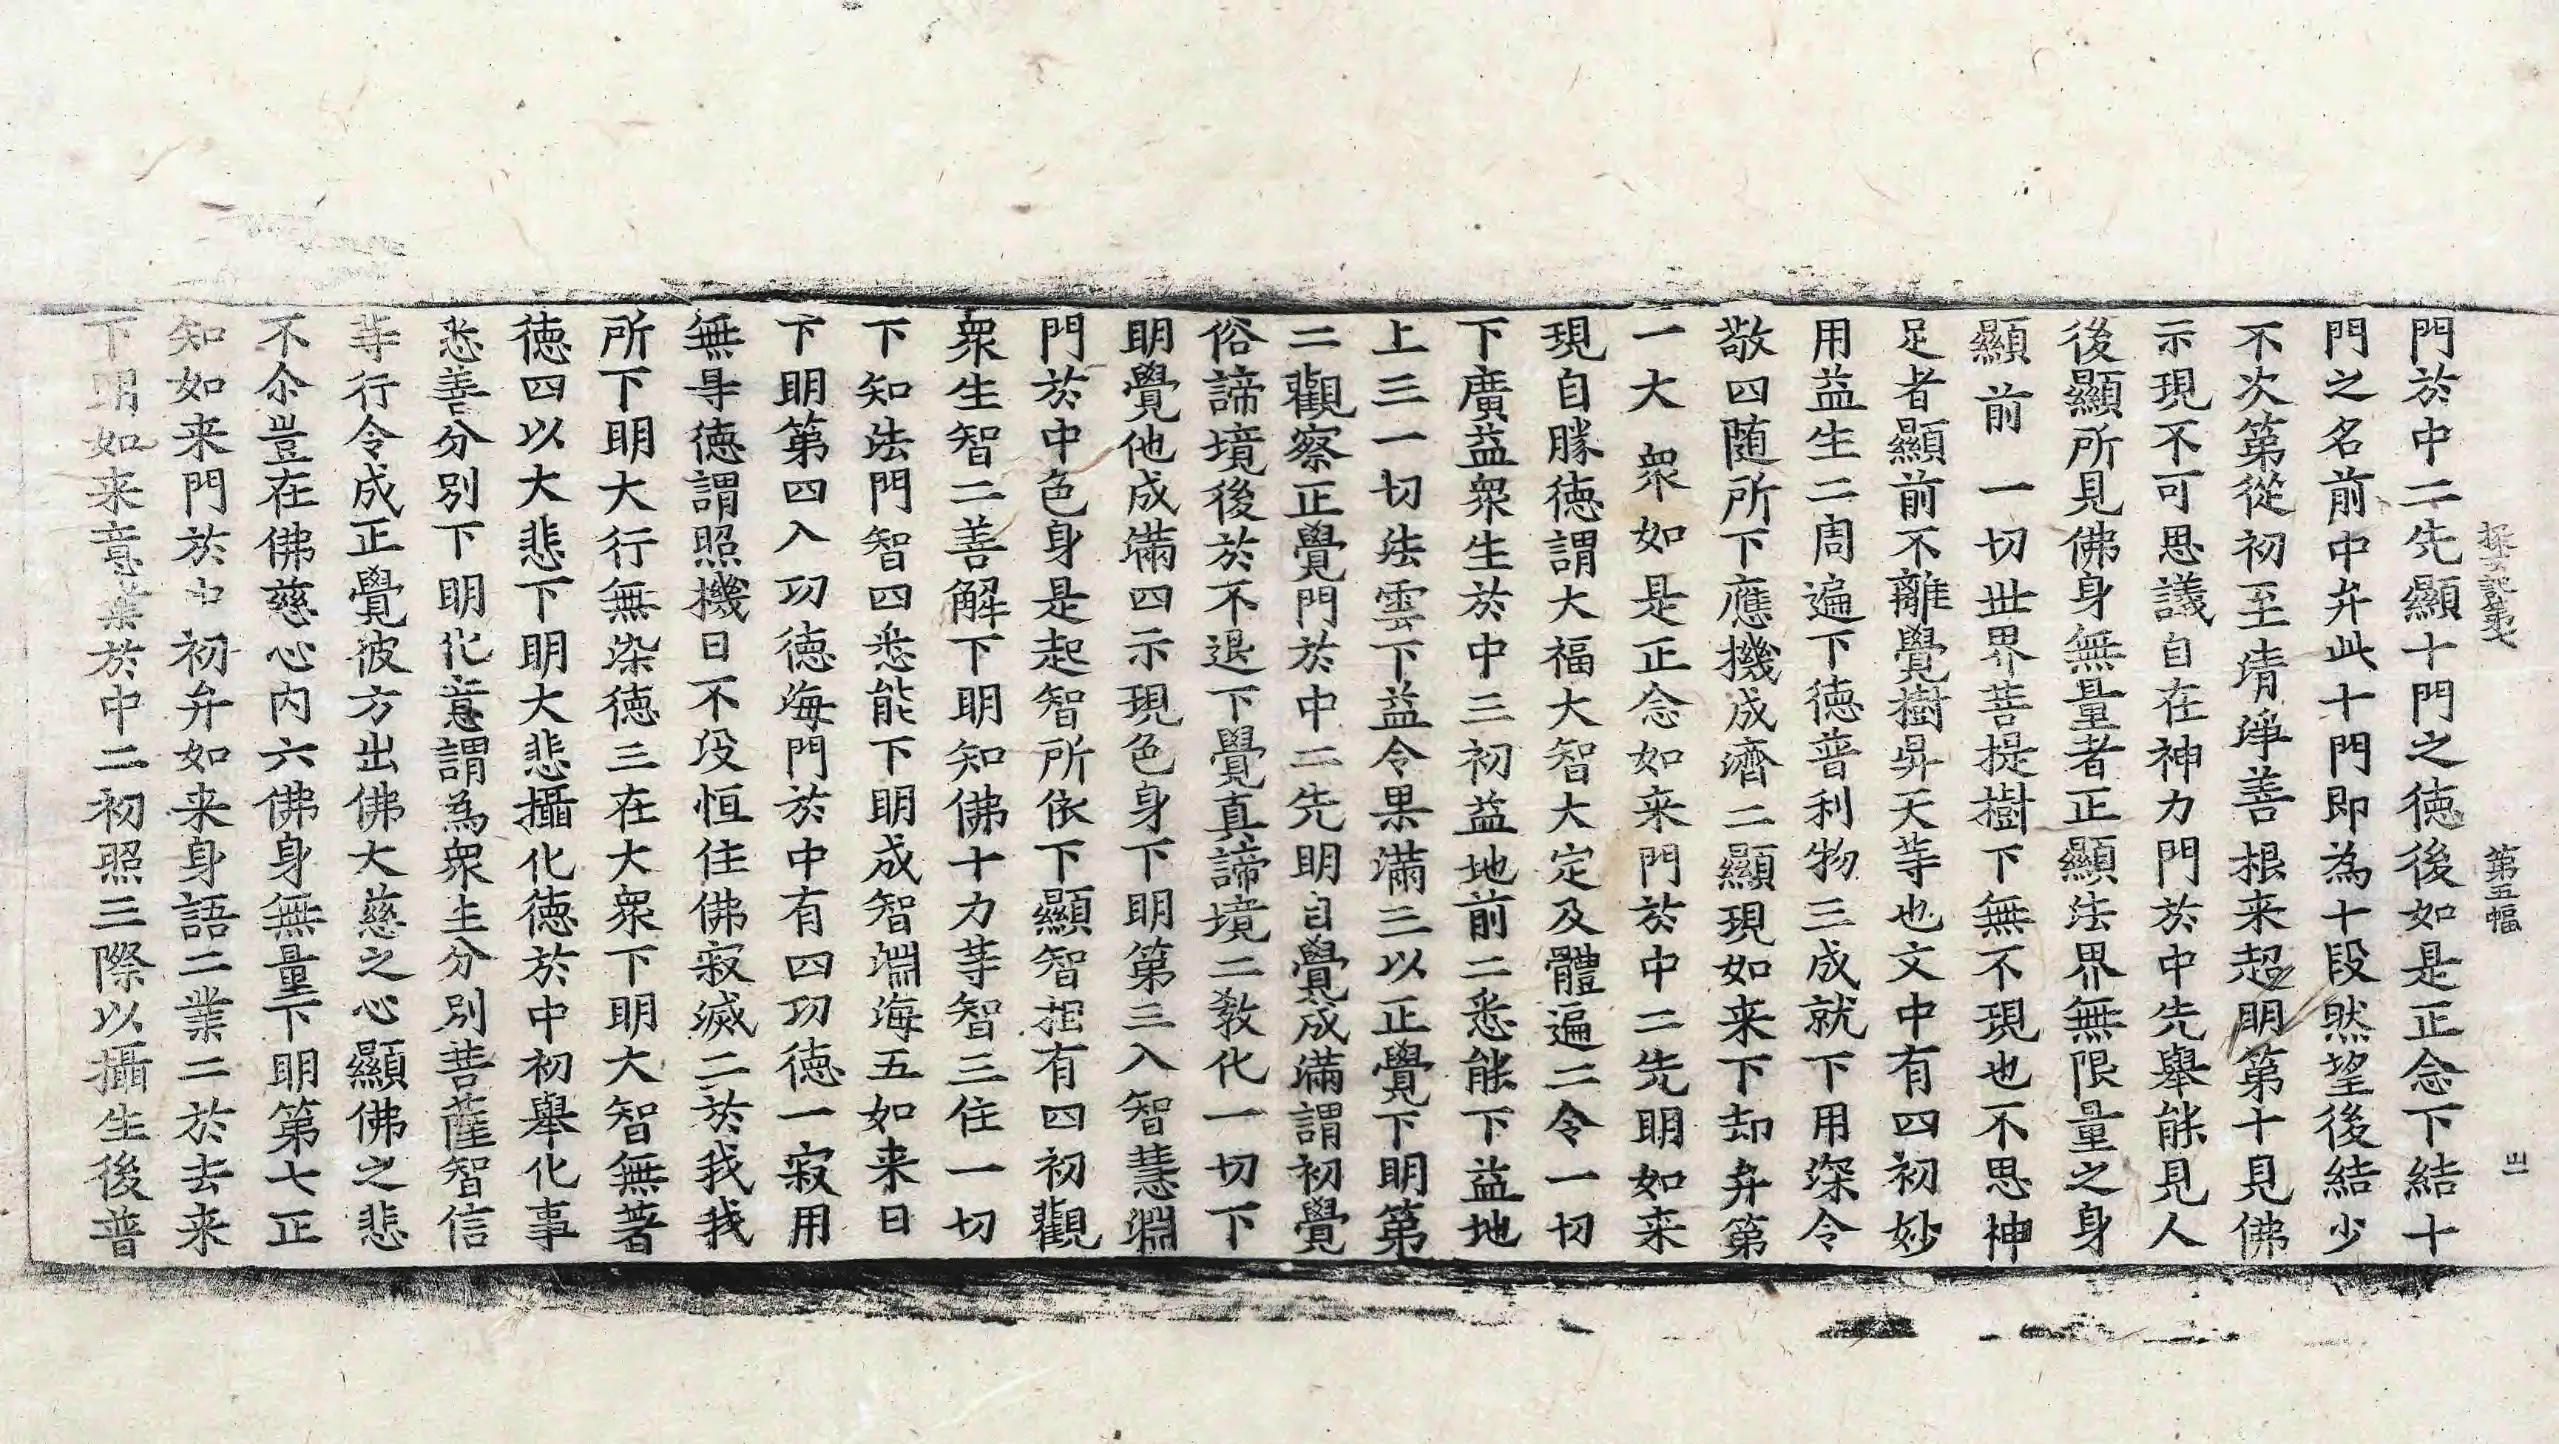 探玄記第七 第五幅 出
門於中二先顯十門之德後如是正念下結十
門之名前中弁此十門即為十段然望後結少
不次第從初至清淨善根来超明第十見佛
示現不可思議自在神力門於中先舉能見人
後顯所見佛身無量者正顯法界無限量之身
顯前一切世界菩提樹下無不現也不思神
足者顯前不離覺樹昇天䓁也文中有四初妙
用益生二周遍下德普利物三成就下用深令
敬四随所下應機成濟二顯現如来下却弁第
一大衆如是正念如来門於中二先明如来
現自勝德謂大福大智大定及體遍二令一切
下廣益衆生於中三初益地前二悉能下益地
上三一切法雲下益令果滿三以正覺下明第
二觀察正覺門於中二先明自覺成滿謂初覺
俗諦境後於不退下覺真諦境二教化一切下
明覺他成滿四示現色身下明第三入智慧淵
門於中色身是起智所依下顯智相有四初觀
衆生智二善解下明知佛十力䓁智三住一切
下知法門智四悉能下明成智淵海五如来日
下明第四入功德海門於中有四功德一寂用
無㝵德謂照機日不没恒住佛寂滅二於我我
所下明大行無染德三在大衆下明大智無著
德四以大悲下明大悲攝化德於中初舉化事
悉善分別下明化意謂為衆生分別菩薩智信
䓁行令成正覺彼方出佛大慈之心顯佛之悲
不尒豈在佛慈心内六佛身無量下明第七正
知如来門於中初弁如来身語二業二於去来
下明如来意業於中二初照三際以攝生後普